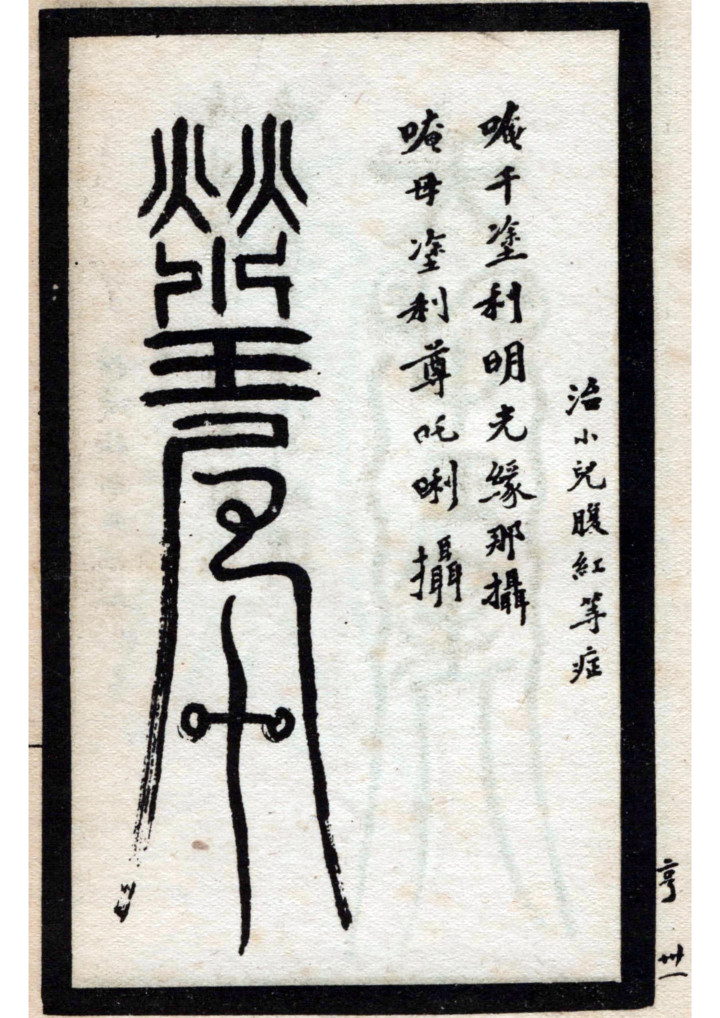 治小兒腹紅等症
唵千塗利明光緣那攝
唵母塗利尊吒唎攝
亨 卅一